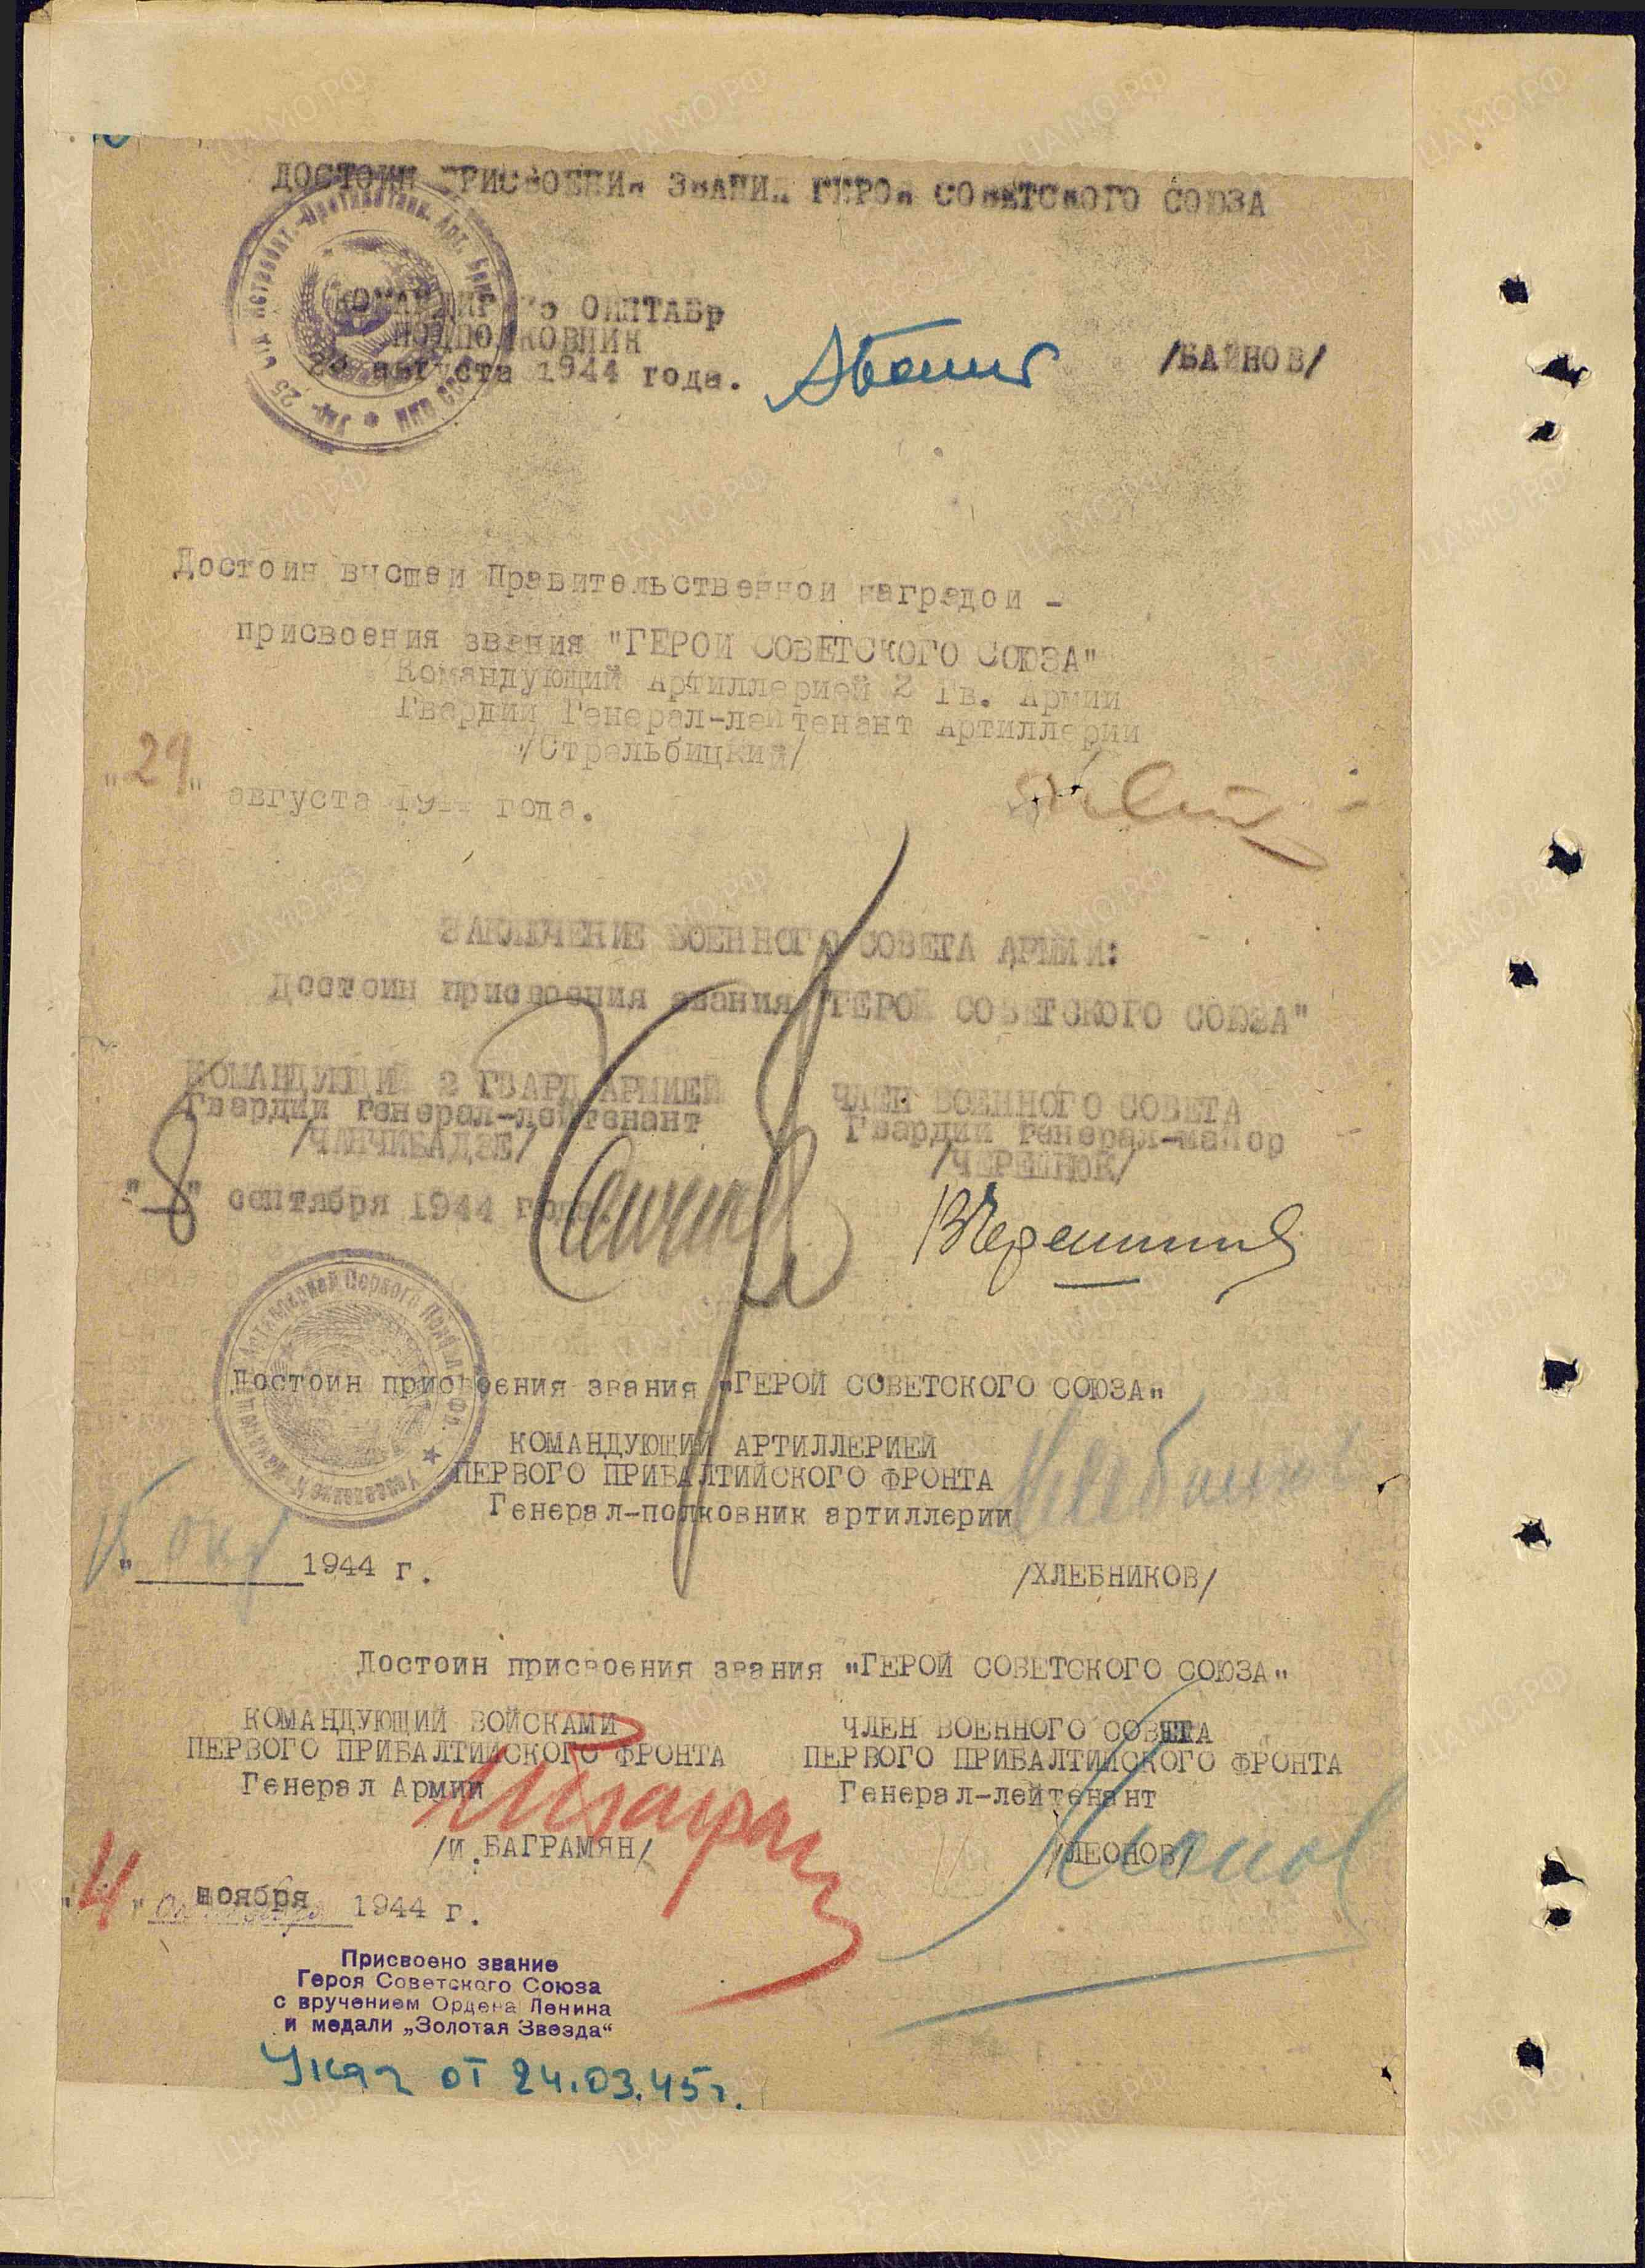 ДОСТОИН ПРИСВОЕНИЯ ЗВАНИЯ ГЕРОЯ СОВЕТСКОГО СОЮЗА
КОМАНДИР ОИПТАБр
ПОДПОЛКОВНИК
августа 1944 года.
/БАЙНОВ/
Достоин высшей Правительственной наградой -
присвоения звания "ГЕРОЙ СОВЕТСКОГО СОЮЗА"
Командующий Артиллерией 2 Гв. Армии
Гвардии Генерал-лейтенант Артиллерии
/Стрельбицкий/
"29" августа 1944 года.
ЗАКЛЮЧЕНИЕ ВОЕННОГО СОВЕТА АРМИИ:
Достоин присвоения звания "ГЕРОЙ СОВЕТСКОГО СОЮЗА"
КОМАНДУЮЩИЙ 2 ГВАРД АРМИЕЙ
Гвардии генерал-лейтенант
/ЧАНЧИБАДЗЕ/
"8" сентября 1944 года.
ЧЛЕН ВОЕННОГО СОВЕТА
Гвардии генерал-майор
/ЧЕРЕШНЮК/
Достоин присвоения звания "ГЕРОЙ СОВЕТСКОГО СОЮЗА"
КОМАНДУЮЩИЙ АРТИЛЛЕРИЕЙ
ПЕРВОГО ПРИБАЛТИЙСКОГО ФРОНТА
Генерал-полковник артиллерии
окт 1944 г.
/ХЛЕБНИКОВ/
Достоин присвоения звания "ГЕРОЙ СОВЕТСКОГО СОЮЗА"
КОМАНДУЮЩИЙ ВОЙСКАМИ
ПЕРВОГО ПРИБАЛТИЙСКОГО ФРОНТА
Генерал Армии
/И.БАГРАМЯН/
"4" ноября 1944 г.
ЧЛЕН ВОЕННОГО СОВЕТА
ПЕРВОГО ПРИБАЛТИЙСКОГО ФРОНТА
Генерал-лейтенант
/ЛЕОНОВ/
Присвоено звание
Героя Советского Союза
с вручением Ордена Ленина
и медали „Золотая Звезда“
Указ от 24.03.45г.
ЦАМО.РФ